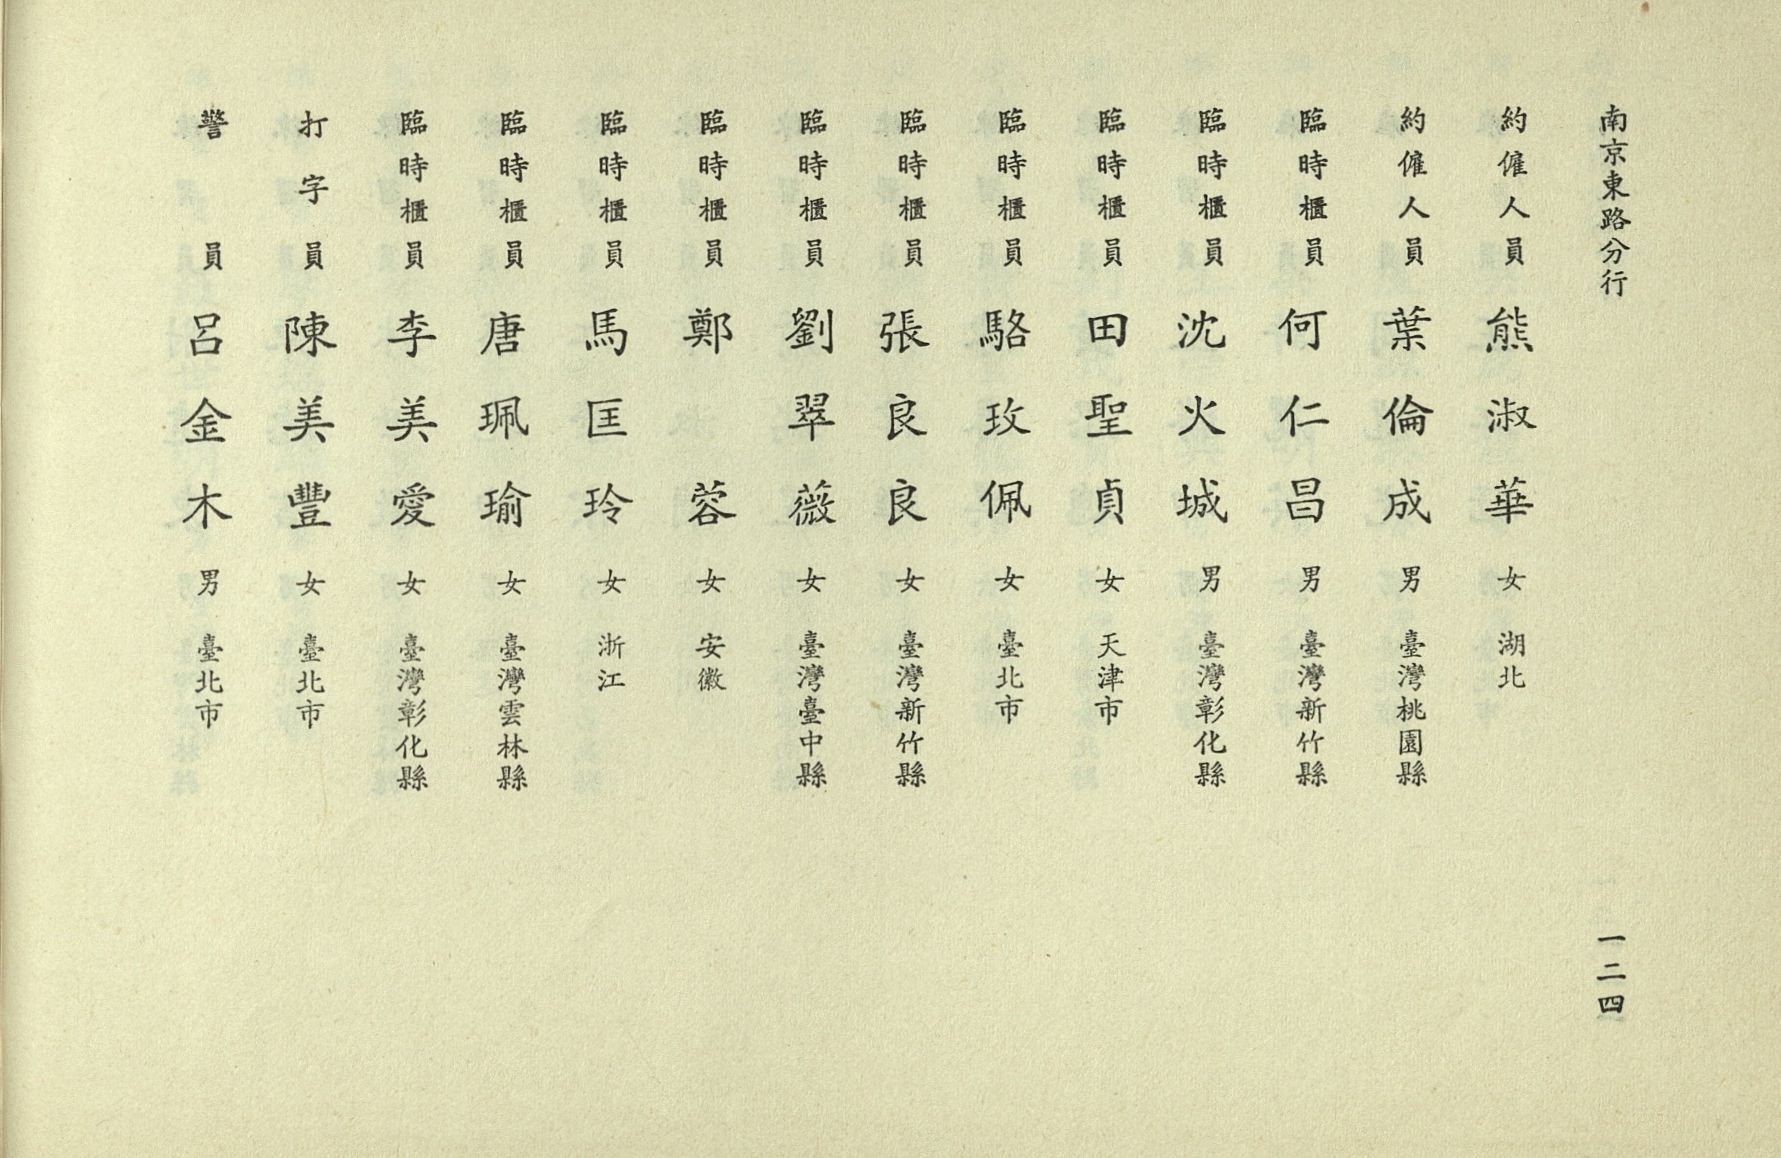 南京東路分行
約僱人員 熊淑華 女 湖北
約僱人員 葉倫成 男 臺灣桃園縣
臨時櫃員 何仁昌 男 臺灣新竹縣
臨時櫃員 沈火城 男 臺灣彰化縣
臨時櫃員 田聖貞 女 天津市
臨時櫃員 駱玫佩 女 臺北市
臨時櫃員 張良良 女 臺灣新竹縣
臨時櫃員 劉翠薇 女 臺灣臺中縣
臨時櫃員 鄭蓉 女 安徽
臨時櫃員 馬匡玲 女 浙江
臨時櫃員 唐珮瑜 女 臺灣雲林縣
臨時櫃員 李美愛 女 臺灣彰化縣
打字員 陳美豐 女 臺北市
警員 呂金木 男 臺北市
一二四